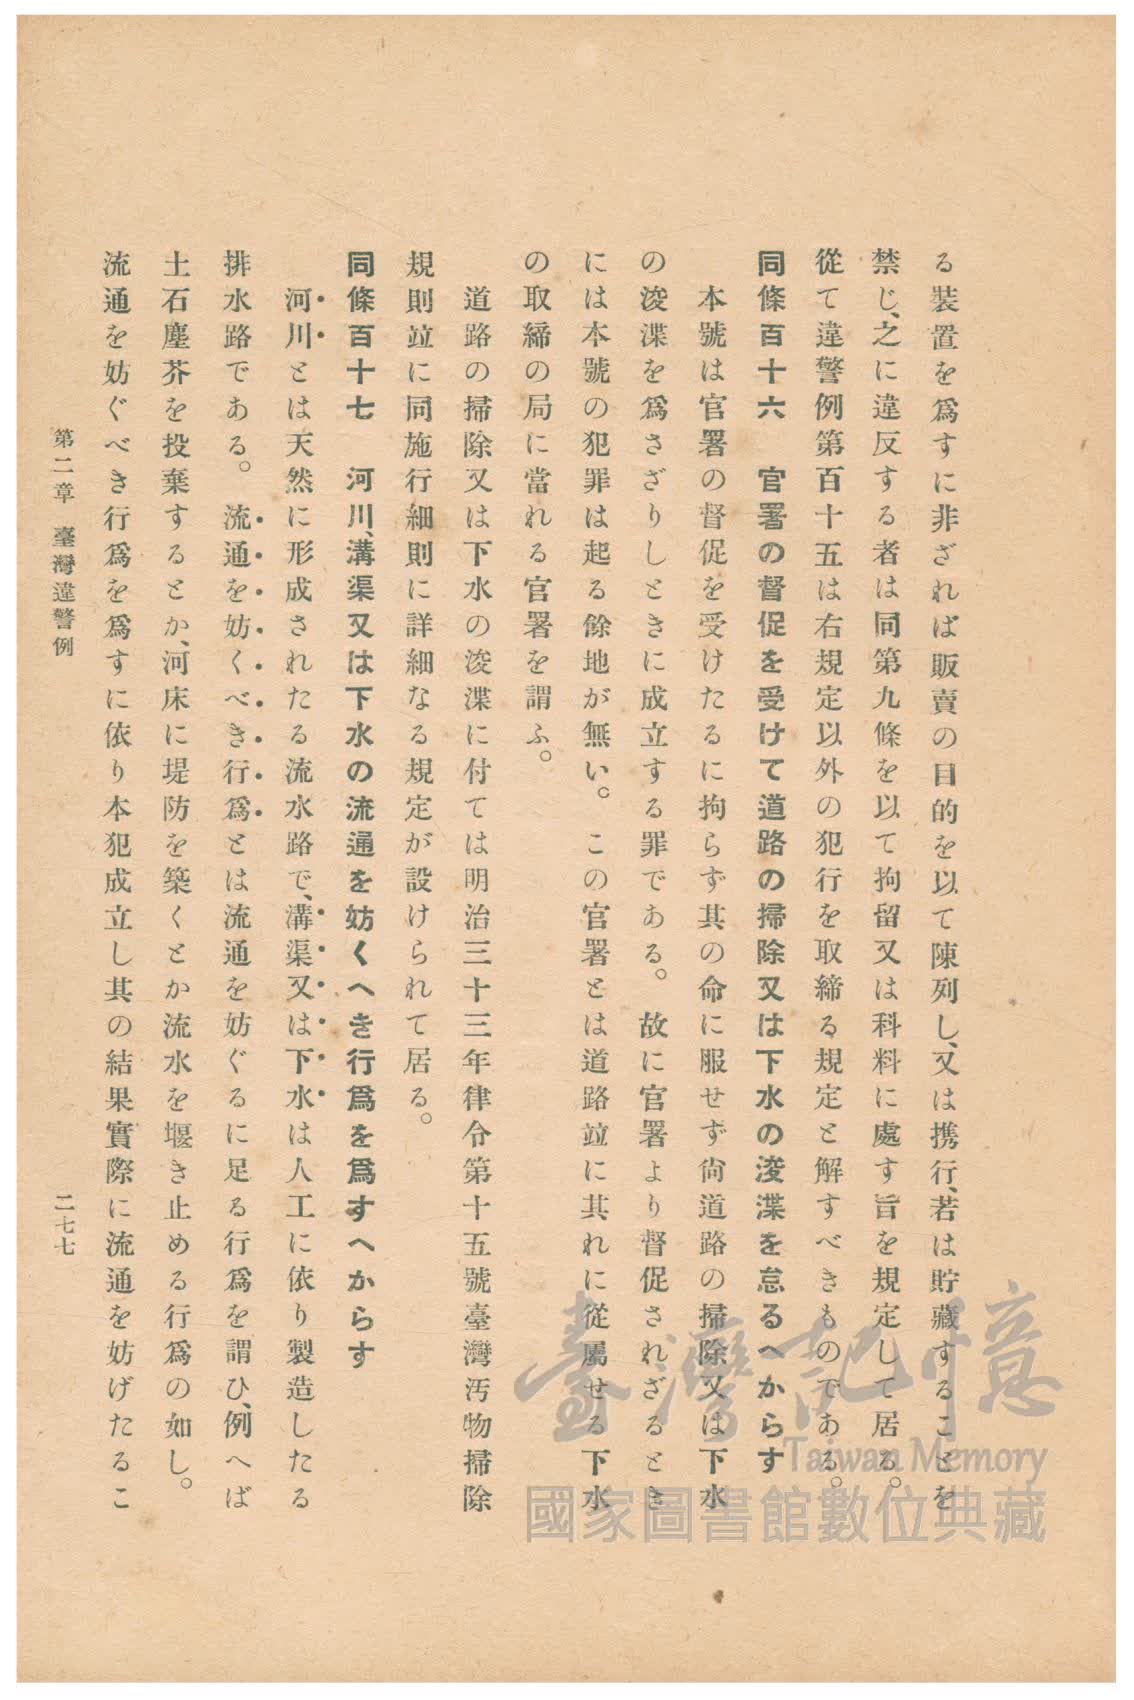 る裝置を爲すに非ざれば販賣の目的を以て陳列し、又は携行、若は貯藏することを
禁じ、之に違反する者は同第九條を以て拘留又は科料に處す旨を規定して居る。
從て違警例第百十五は右規定以外の犯行を取締る規定と解すべきものである。
同條百十六　官署の督促を受けて道路の掃除又は下水の浚渫を怠るへからす
本號は官署の督促を受けたるに拘らず其の命に服せず尙道路の掃除又は下水
の浚渫を爲さざりしときに成立する罪である。故に官署より督促されざるとき
には本號の犯罪は起る餘地が無い。この官署とは道路竝に其れに從屬せる下水
の取締の局に當れる官署を謂ふ。
道路の掃除又は下水の浚渫に付ては明治三十三年律令第十五號臺灣汚物掃除
規則竝に同施行細則に詳細なる規定が設けられて居る。
同條百十七　河川、溝渠又は下水の流通を妨くへき行爲を爲すへからす
河川とは天然に形成されたる流水路で、溝渠又は下水は人工に依り製造したる
排水路である。流通を妨くべき行爲とは流通を妨ぐるに足る行爲を謂ひ、例へば
土石塵芥を投棄するとか、河床に堤防を築くとか流水を堰き止める行爲の如し。
流通を妨ぐべき行爲を爲すに依り本犯成立し其の結果實際に流通を妨げたるこ
第二章　臺灣違警例　二七七
臺灣記憶
Taiwan Memory
國家圖書館數位典藏